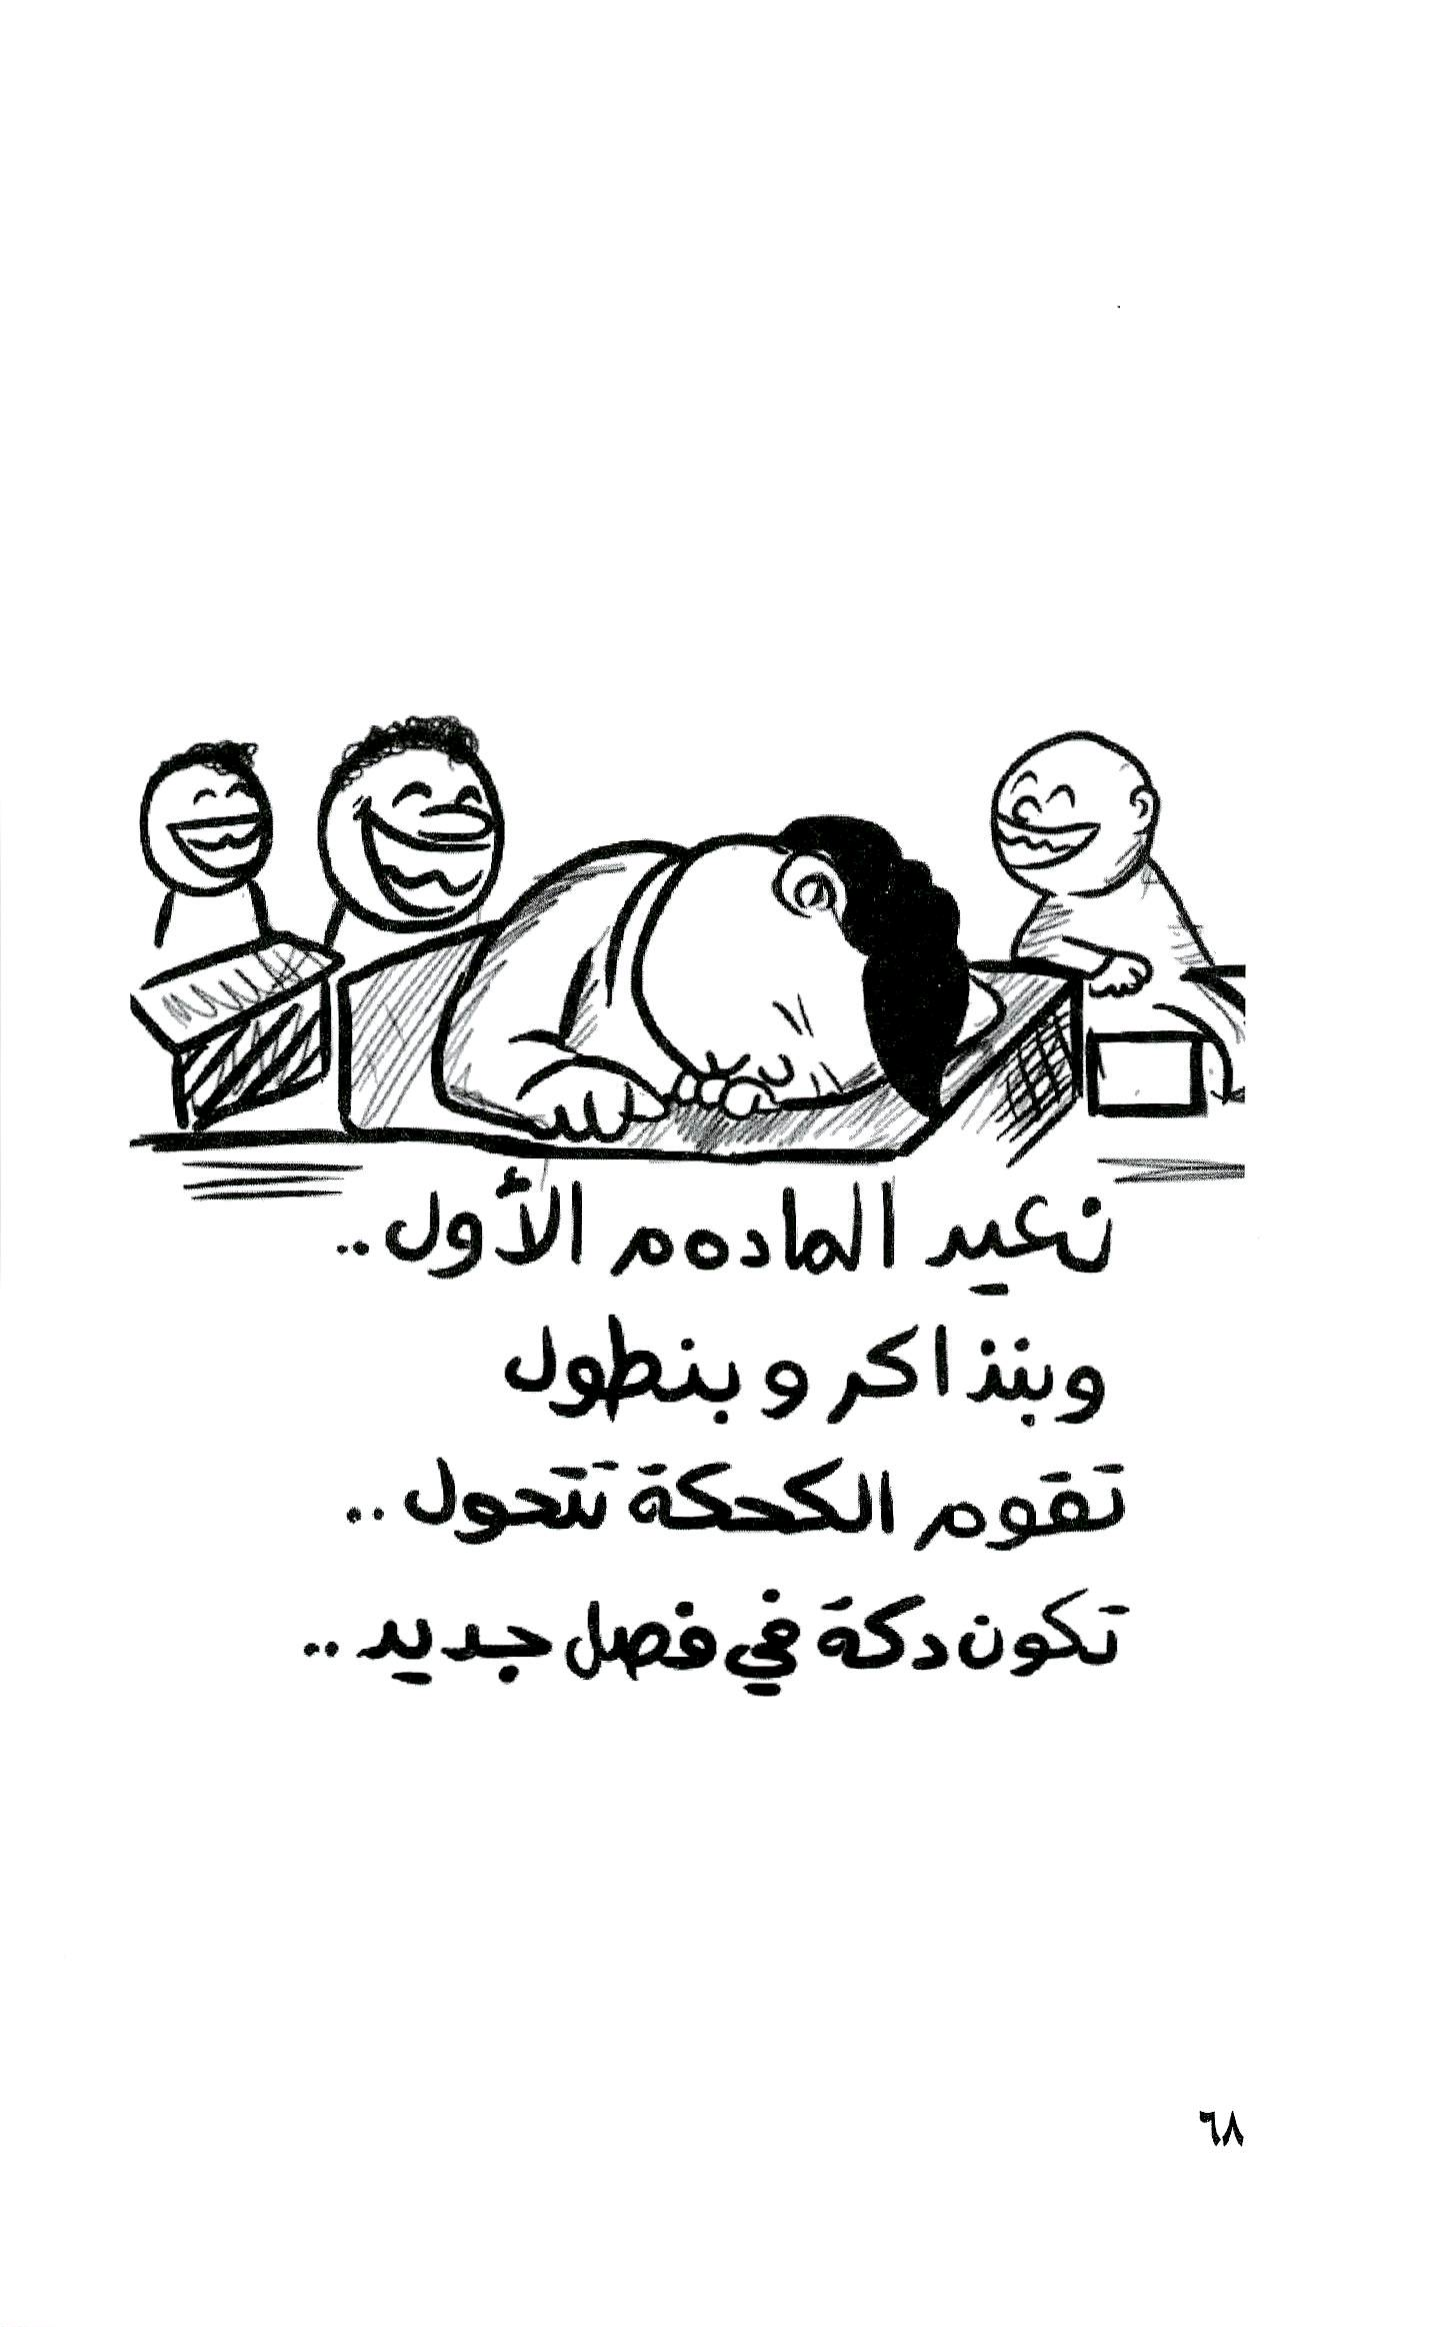 نعيد الماده م الأول..
وبنذاكر و بنطول
تقوم الكحكة تتحول..
تكون دكة في فصل جديد..
٦٨